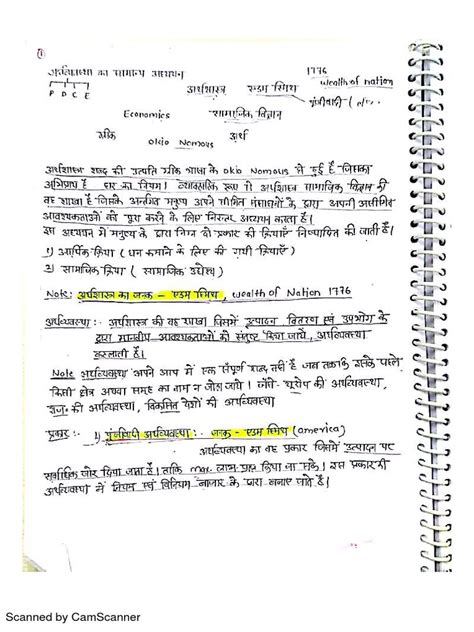 ①
अर्थव्यवस्था का सामान्य अध्ययन 1776
P D C E अर्थशास्त्र एडम स्मिथ wealth of nation
पूंजीवादी
Economics सामाजिक विज्ञान
ग्रीक अर्थ
okio Nomous
अर्थशास्त्र शब्द की उत्पति ग्रीक भाषा के okio Nomous से हुई है जिसका
अभिप्राय है घर का नियम। व्यावसायिक रूप से अर्थशास्त्र सामाजिक विज्ञान की
वह शाखा है जिसके अन्तर्गत मनुष्य अपने सीमित संसाधनों के द्वारा अपनी असीमित
आवश्यकताओं को पूरा करने के लिए निरन्तर अध्ययन करता है।
इस अध्ययन में मनुष्य के द्वारा निम्न दो प्रकार की क्रियाएँ निष्पादित की जाती है।
1) आर्थिक क्रिया (धन कमाने के लिए की गयी क्रियाएँ)
2) सामाजिक क्रिया ( सामाजिक उद्देश्य )
Note: अर्थशास्त्र का जनक – एडम स्मिथ, wealth of Nation 1776
अर्थव्यवस्था :- अर्थशास्त्र की वह शाखा जिसमें उत्पादन वितरण एवं उपभोग के
द्वारा मानवीय आवश्यकताओं को संतुष्ट किया जाये, अर्थव्यवस्था
कहलाती है।
Note अर्थव्यवस्था अपने आप में एक संपूर्ण शब्द नहीं है जब तक कि उसके पहले
किसी क्षेत्र अथवा समूह का नाम न जोडा जाये। जैसे- यूरोप की अर्थव्यवस्था,
की अर्थव्यवस्था, विकसित देशों की अर्थव्यवस्था
प्रकार :- 1) पूंजीवादी अर्थव्यवस्था :- जनक – एडम स्मिथ (america)
अर्थव्यवस्था का वह प्रकार जिसमें उत्पादन पर
सर्वाधिक जोर दिया जाता है। ताकि max. लाभ प्राप्त किया जा सके। इस प्रकार की
अर्थव्यवस्था में नियम एवं विनियम बाजार के द्वारा बनाए जाते है।
Scanned by CamScanner